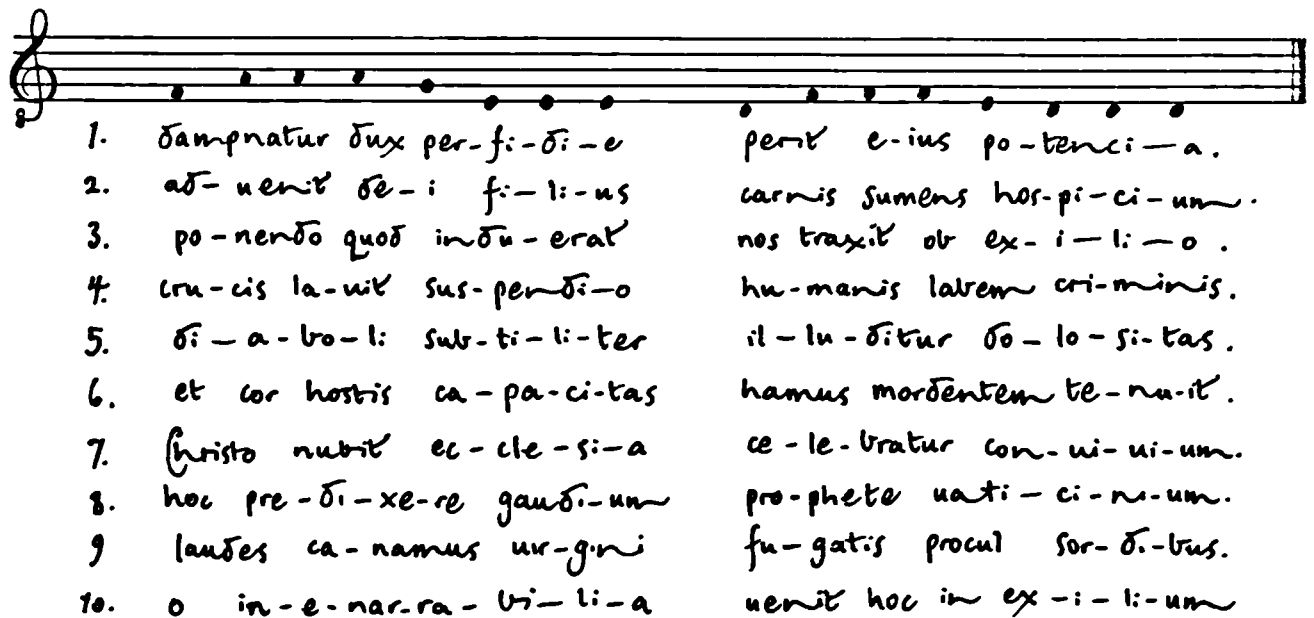 8
1. dampnatur dux per-fi-di-e perit e-ius po-tenci-a.
2. ad-uenit de-i fi-li-us carnis sumens hos-pi-ci-um.
3. po-nendo quod indu-erat nos traxit ob ex-i-li-o.
4. cru-cis la-uit sus-pendi-o hu-manis labem cri-minis.
5. di-a-bo-li sub-ti-li-ter il-lu-ditur do-lo-si-tas.
6. et cor hostis ca-pa-ci-tas hamus mordentem te-nu-it.
7. Christo nubit ec-cle-si-a ce-le-bratur con-ui-ui-um.
8. hoc pre-di-xe-re gaudi-um pro-phete uati-ci-ni-um.
9 laudes ca-namus uir-gini fu-gatis procul sor-di-bus.
10. o in-e-nar-ra-bi-li-a uenit hoc in ex-i-li-um